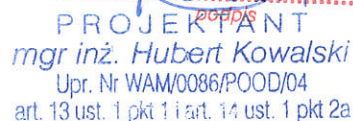 podpis
PROJEKTANT
mgr inż. Hubert Kowalski
Upr. Nr WAM/0086/POOD/04
art. 13 ust. 1 pkt 1 i art. 14 ust. 1 pkt 2a